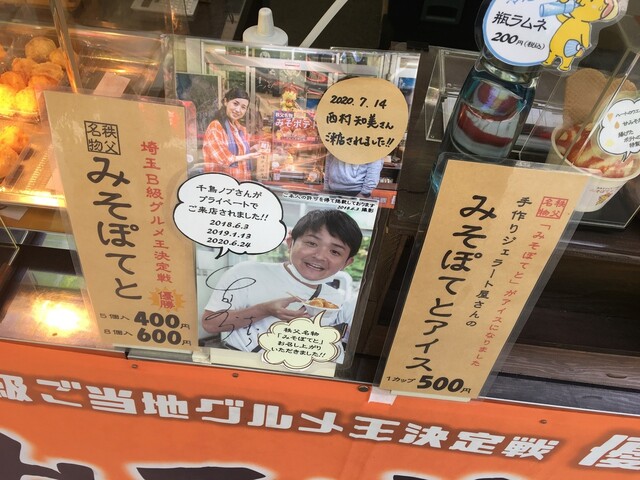 秩父名物
みそぽてと
埼玉B級グルメ王決定戦
優勝
5個入 400円
8個入 600円
秩父名物
みそポテ
2020.7.14
西村 知美さん
ご来店されました!!
千鳥ノブさんが
プライベートで
ご来店されました!!
2018.6.3
2019.1.13
2020.6.24
ご本人の許可を得て掲載しております
2018.6.3 撮影
秩父名物
「みそぽてと」
お召し上がり
いただきました!!
瓶ラムネ
200円(税込)
秩父名物
「みそぽてと」がアイスになりました
手作りジェラート屋さんの
みそぽてとアイス
1カップ 500円
級ご当地グルメ王決定戦 優